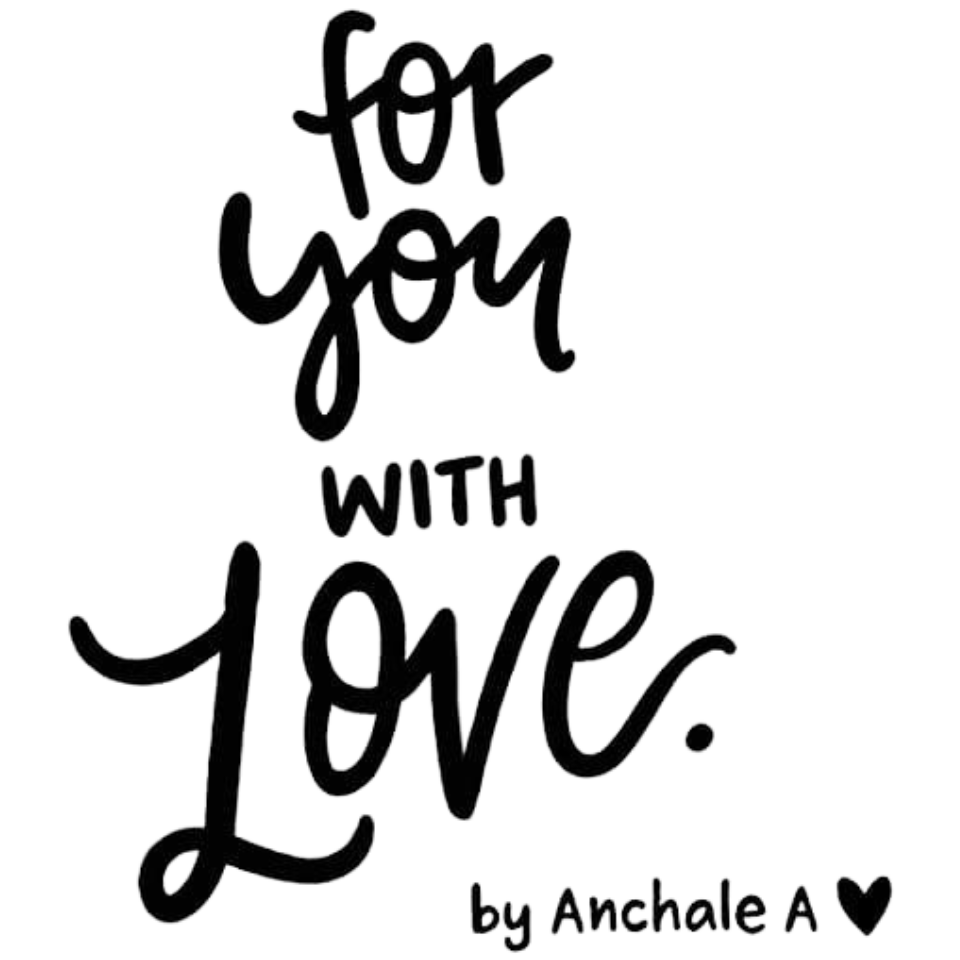 for
you
WITH
Love.
by Anchale A ♥